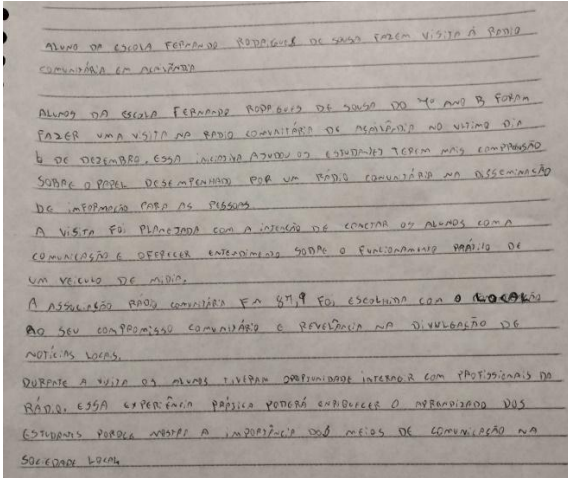 ALUNO DA ESCOLA FERNANDO RODRIGUES DE SOUSA FAZEM VISITA À RADIO
COMUNITÁRIA EM
ALUNOS DA ESCOLA FERNANDO RODRIGUES DE SOUSA DO ANO B FORAM
FAZER UMA VISITA NA RADIO COMUNITÁRIA DE NO ULTIMO DIA
6 DE DEZEMBRO. ESSA INICIATIVA AJUDOU OS ESTUDANTES TEREM MAIS COMPRENSÃO
SOBRE O PAPEL DESEMPENHADO POR UM RÁDIO COMUNITÁRIA NA DISSEMINAÇÃO
DE INFORMAÇÃO PARA AS PESSOAS.
A VISITA FOI PLANEJADA COM A INTENÇÃO DE CONCTAR OS ALUNOS COM A
COMUNICAÇÃO E OFERECER ENTENDIMENTO SOBRE O FUNCIONAMENTO PRÁTICO DE
UM VEICULO DE MIDIA.
A ASSOCIAÇÃO RADIO COMUNITÁRIA FM 87,9 FOI ESCOLHIDA COM O
AO SEU COMPROMISSO COMUNITÁRIO E REVELÂNCIA NA DIVULGAÇÃO DE
NOTÍCIAS LOCAIS.
DURANTE A VISITA OS ALUNOS TIVERAM OPORTUNIDADE INTERAGIR COM PROFISSIONAIS DA
RÁDIO. ESSA EXPERIÊNCIA PRÁTICA PODERÁ ENRIQUECER O APRENDIZADO DOS
ESTUDANTES A IMPORTÂNCIA DOS MEIOS DE COMUNICAÇÃO NA
SOCIEDADE LOCAL